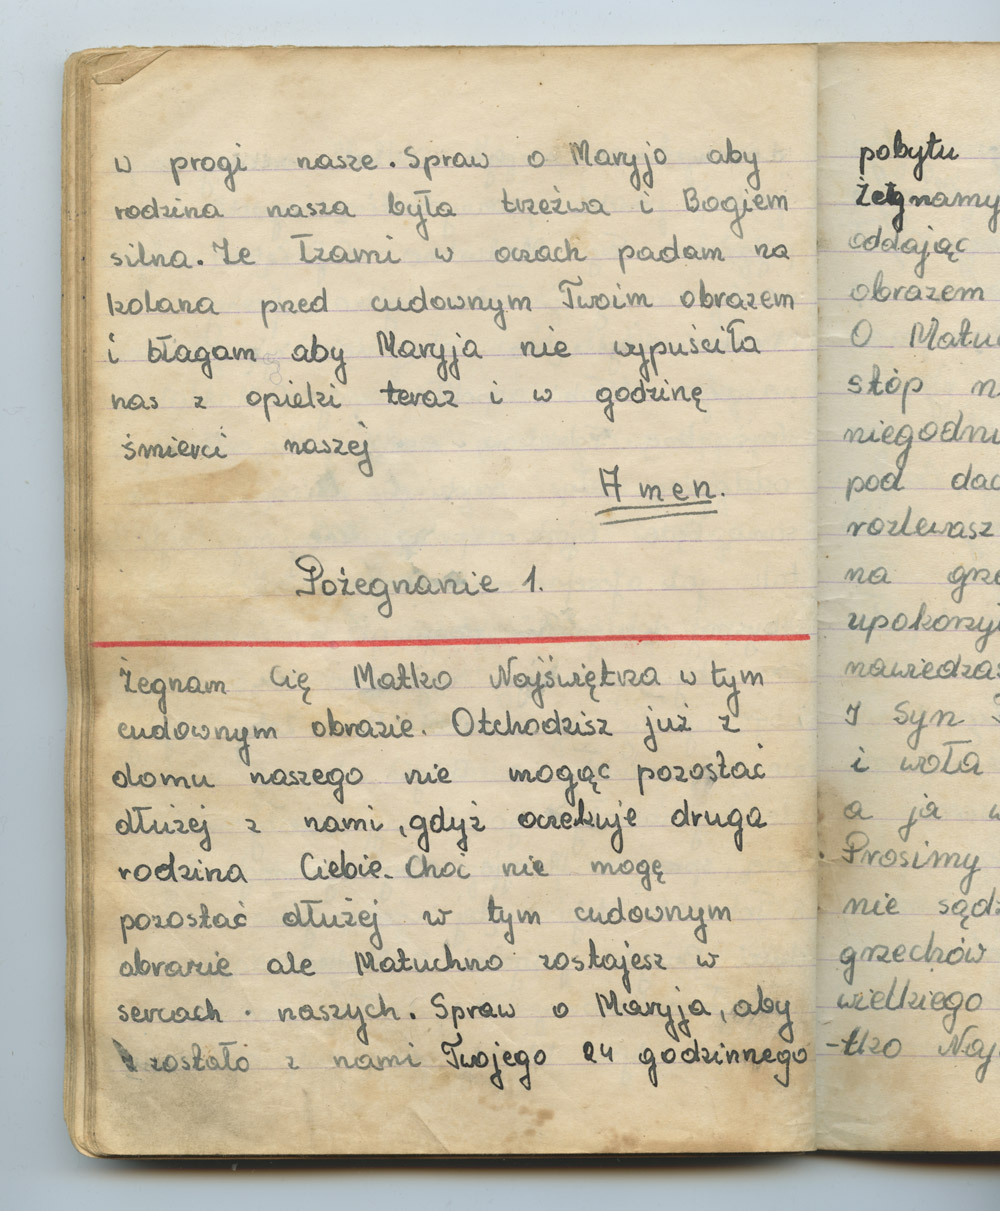 w progi nasze. Spraw o Maryjo aby
rodzina nasza była trzeźwa i Bogiem
silna. Ze łzami w oczach padam na
kolana przed cudownym Twoim obrazem
i błagam aby Maryja nie wypuściła
nas z opieki teraz i w godzinę
śmierci naszej
Amen.
Pożegnanie 1.
Żegnam Cię Matko Najświętsza w tym
cudownym obrazie. Otchodzisz już z
domu naszego nie mogąc pozostać
dłużej z nami, gdyż oczekuje druga
rodzina Ciebie. Choć nie mogę
pozostać dłużej w tym cudownym
obrazie ale Matuchno zostajesz w
sercach naszych. Spraw o Maryja, aby
zostało z nami Twojego 24 godzinnego
pobytu
Żegnamy
oddając
obrazem
O Matu
stóp n
niegodni
pod dac
rozlewasz
na grze
upokorzy
nawiedzas
I Syn
i woła
a ja w
Prosimy
nie sądz
grzechów
wielkiego
-tko Naj